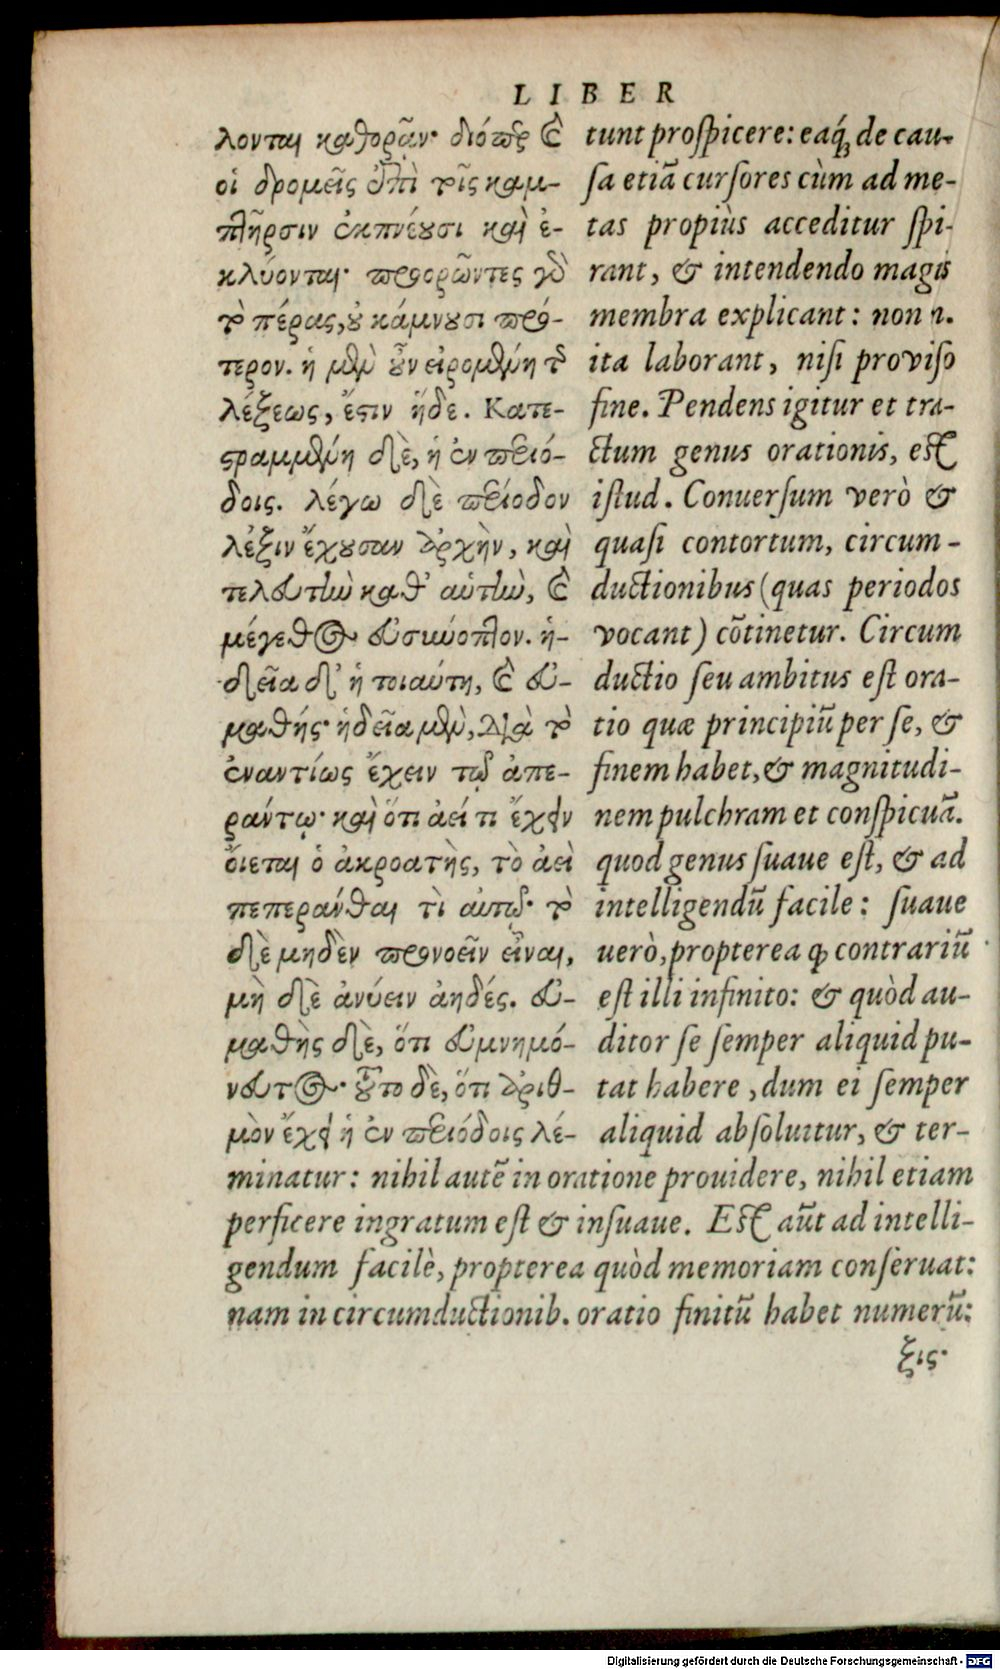 LIBER
λονται καθορᾶν· διόπερ καὶ
οἱ δρομεῖς ἐπὶ τοῖς καμ-
πῆρσιν ἐκπνέουσι καὶ ἐ-
κλύονται· προορῶντες γὸ
τὸ πέρας, οὐ κάμνουσι πρό-
τερον. ἡ μὲν οὖν εἰρομένη τ῀
λέξεως, ἔστιν ἥδε. Κατε-
στραμμένη δὲ, ἡ ἐν περιό-
δοις. λέγω δὲ περίοδον
λέξιν ἔχουσαν ἀρχὴν, καὶ
τελευτὴν καθ' αὑτὴν, καὶ
μέγεθος εὐσύνοπτον. ἡ-
δεῖα δ' ἡ τοιαύτη, καὶ εὐ-
μαθής· ἡδεῖα μὲν, διὰ τὸ
ἐναντίως ἔχειν τῷ ἀπε-
ράντῳ· καὶ ὅτι ἀεί τι ἔχειν
οἴεται ὁ ἀκροατὴς, τὸ ἀεὶ
πεπεράνθαι τὶ αὐτῷ· τὸ
δὲ μηδὲν προνοεῖν εἶναι,
μὴ δὲ ἀνύειν ἀηδές. εὐ-
μαθὴς δὲ, ὅτι εὐμνημό-
νευτος· τοῦτο δὲ, ὅτι ἀριθ-
μὸν ἔχει ἡ ἐν περιόδοις λέ-
tunt prospicere: eaq́; de cau-
sa etiā cursores cùm ad me-
tas propiùs acceditur spi-
rant, & intendendo magis
membra explicant: non n.
ita laborant, nisi proviso
fine. Pendens igitur et tra-
ctum genus orationis, est
istud. Conuersum verò &
quasi contortum, circum-
ductionibus (quas periodos
vocant) cōtinetur. Circum
ductio seu ambitus est ora-
tio quæ principiū per se, &
finem habet, & magnitudi-
nem pulchram et conspicuā.
quod genus suaue est, & ad
intelligendū facile: suaue
verò, propterea ꝙ contrariū
est illi infinito: & quòd au-
ditor se semper aliquid pu-
tat habere, dum ei semper
aliquid absoluitur, & ter-
minatur: nihil autē in oratione prouidere, nihil etiam
perficere ingratum est & insuaue. Est aūt ad intelli-
gendum facilè, propterea quòd memoriam conseruat:
nam in circumductionib. oratio finitū habet numerū:
ξις·
Digitalisierung gefördert durch die Deutsche Forschungsgemeinschaft - DFG